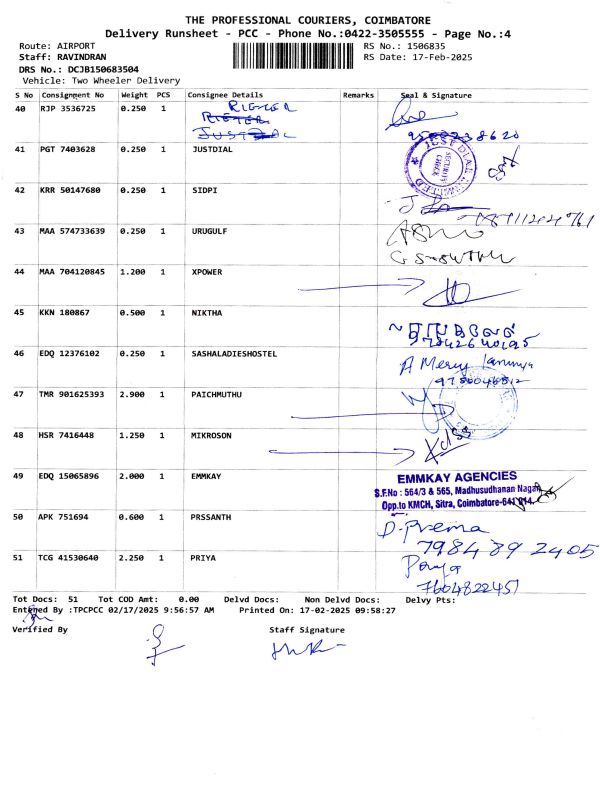 THE PROFESSIONAL COURIERS, COIMBATORE
Delivery Runsheet - PCC - Phone No.:0422-3505555 - Page No.:4
Route: AIRPORT RS No.: 1506835
Staff: RAVINDRAN RS Date: 17-Feb-2025
DRS No.: DCJB150683504
Vehicle: Two Wheeler Delivery
S No Consignment No Weight PCS Consignee Details Remarks Seal & Signature
40 RJP 3536725 0.250 1 RIETER
41 PGT 7403628 0.250 1 JUSTDIAL
JUST DIAL
SECURITY CHECK
42 KRR 50147680 0.250 1 SIDPI
43 MAA 574733639 0.250 1 URUGULF
44 MAA 704120845 1.200 1 XPOWER
45 KKN 180867 0.500 1 NIKTHA
46 EDQ 12376102 0.250 1 SASHALADIESHOSTEL
A Mercy
47 TMR 901625393 2.900 1 PAICHMUTHU
48 HSR 7416448 1.250 1 MIKROSON
49 EDQ 15065896 2.000 1 EMMKAY
EMMKAY AGENCIES
S.F.No : 564/3 & 565, Madhusudhanan Nagar,
Opp.to KMCH, Sitra, Coimbatore-641 014.
50 APK 751694 0.600 1 PRSSANTH
D. Prema
7984892405
51 TCG 41530640 2.250 1 PRIYA
Priya
7604822451
Tot Docs: 51 Tot COD Amt: 0.00 Delvd Docs: Non Delvd Docs: Delvy Pts:
Entered By :TPCPCC 02/17/2025 9:56:57 AM Printed On: 17-02-2025 09:58:27
Verified By Staff Signature